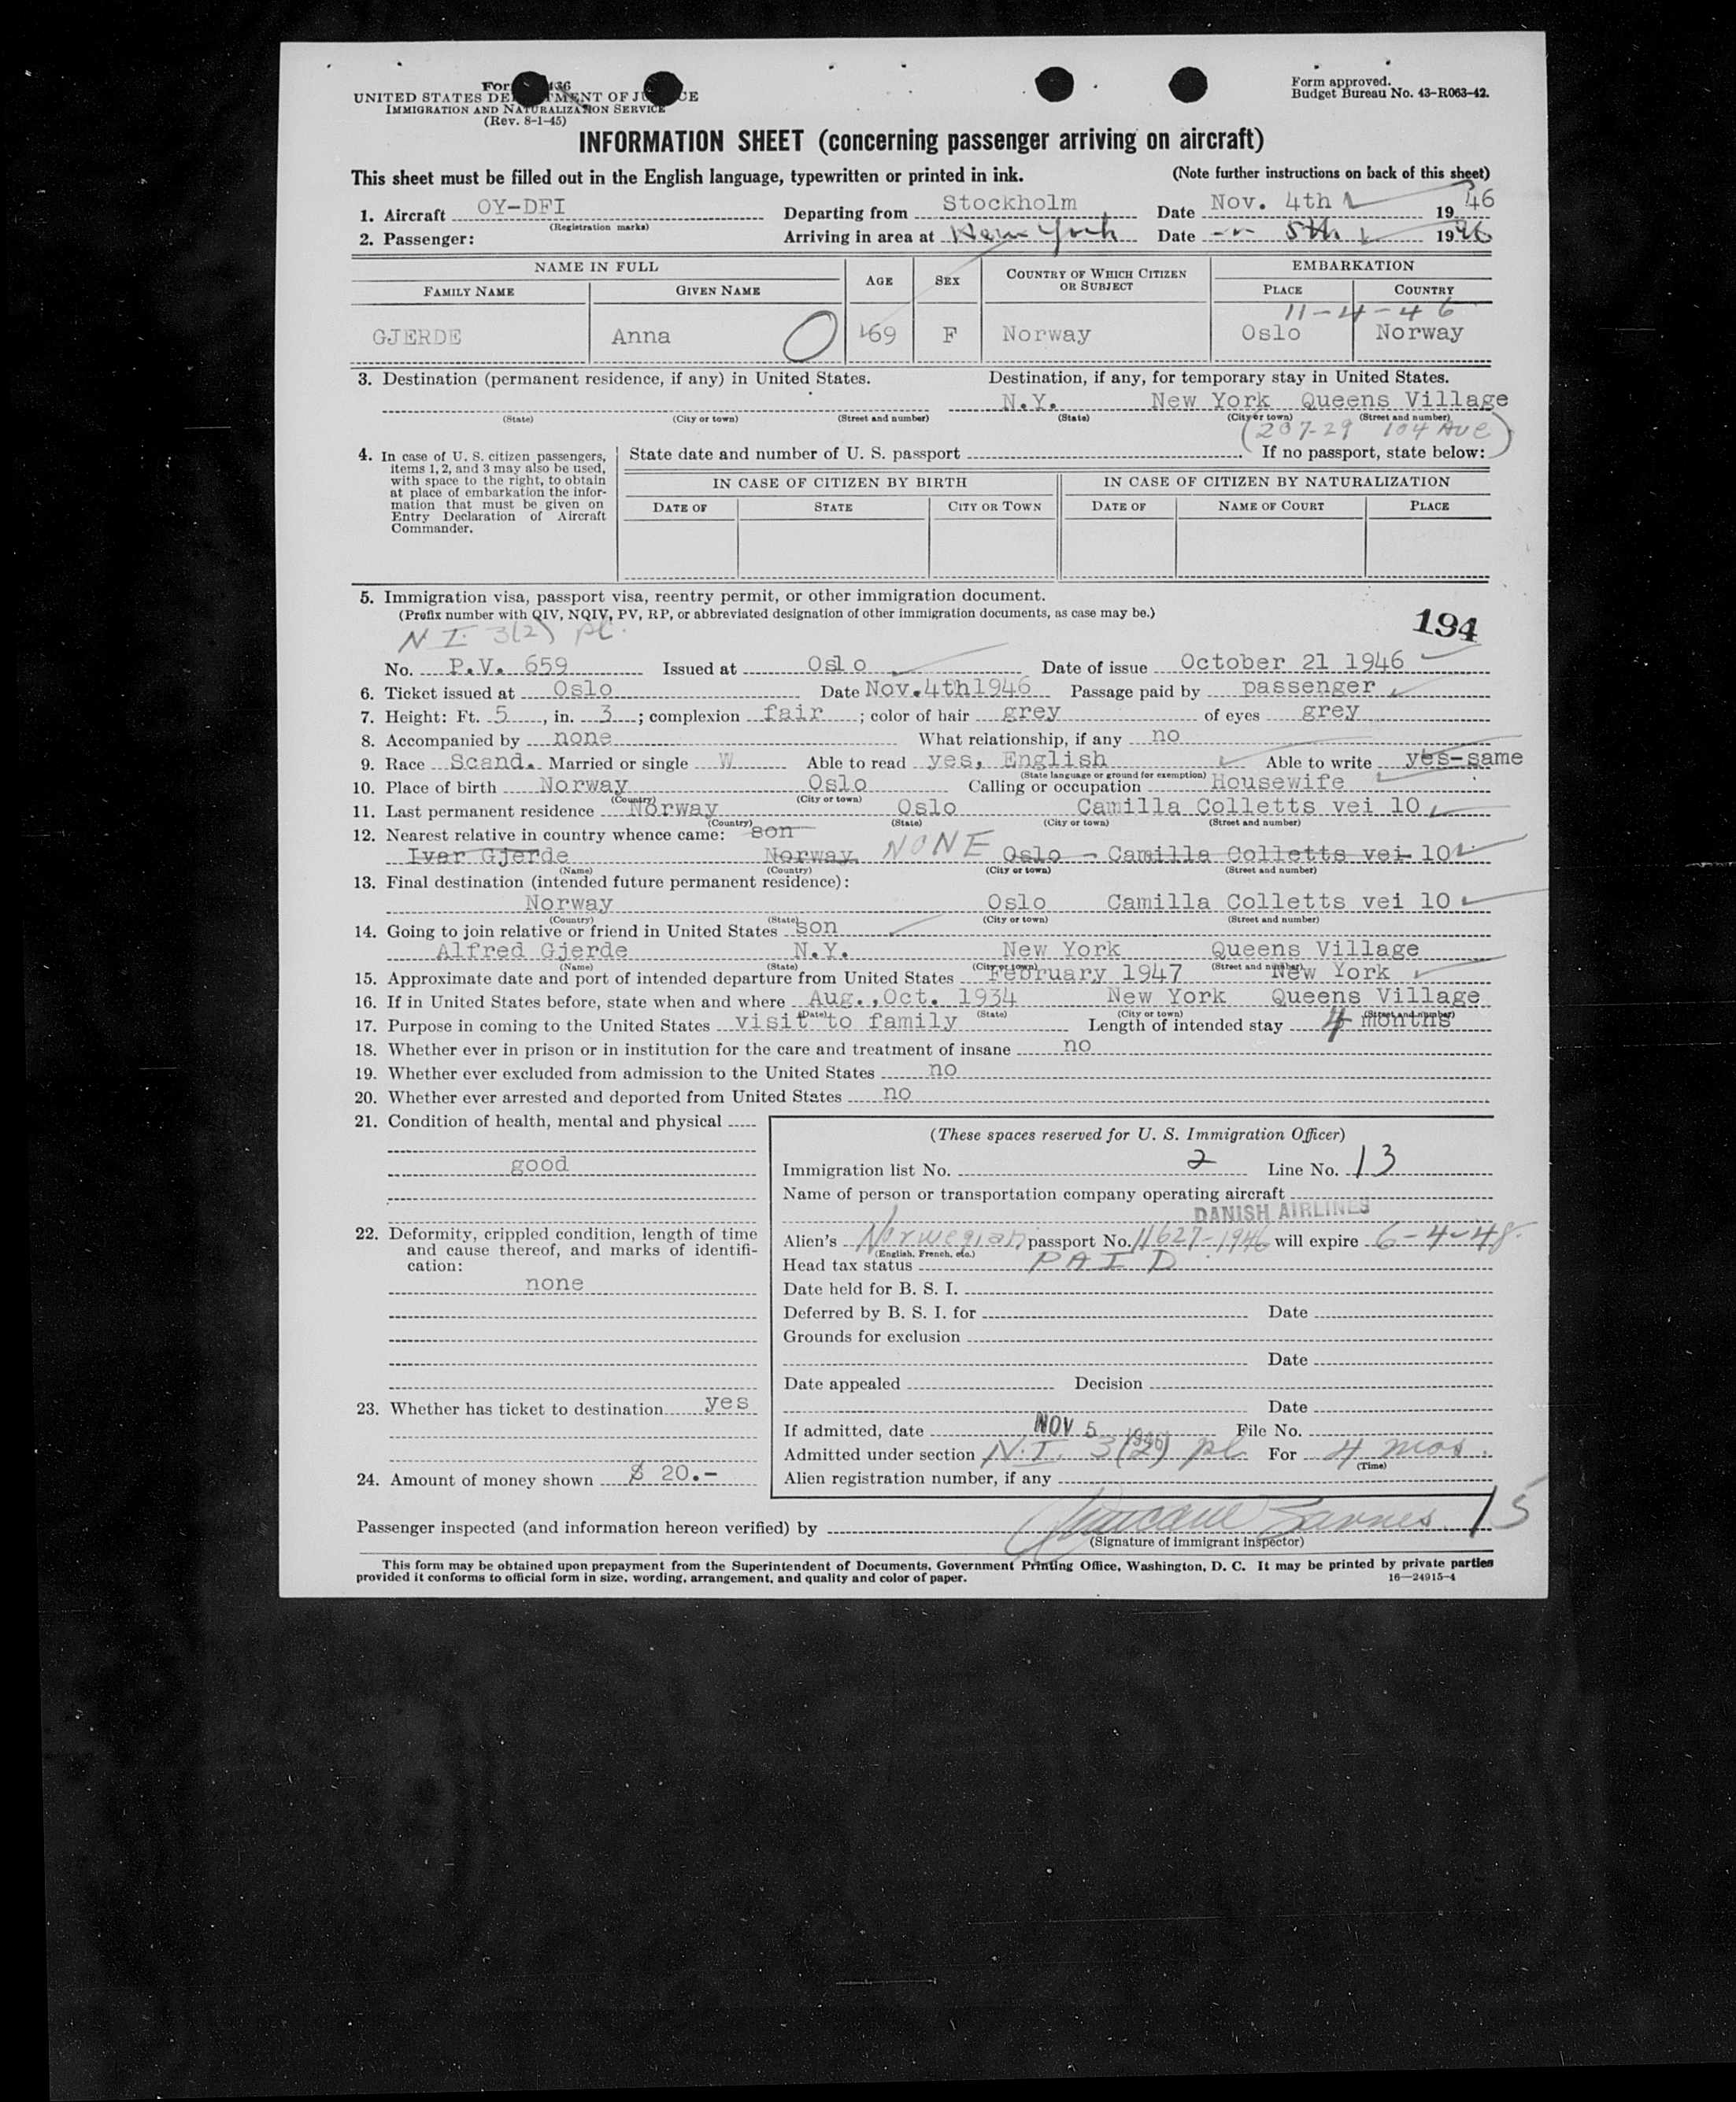 For 466
UNITED STATES DEPARTMENT OF JUSTICE
IMMIGRATION AND NATURALIZATION SERVICE
(Rev. 8-1-45)
Form approved.
Budget Bureau No. 43-R063-42.
INFORMATION SHEET (concerning passenger arriving on aircraft)
This sheet must be filled out in the English language, typewritten or printed in ink. (Note further instructions on back of this sheet)
1. Aircraft OY-DFI Departing from Stockholm Date Nov. 4th 1946
(Registration marks)
2. Passenger: Arriving in area at New York Date -"- 5th 1946
NAME IN FULL AGE SEX COUNTRY OF WHICH CITIZEN OR SUBJECT EMBARKATION
FAMILY NAME GIVEN NAME PLACE COUNTRY
11-4-46
GJERDE Anna 69 F Norway Oslo Norway
3. Destination (permanent residence, if any) in United States. Destination, if any, for temporary stay in United States.
N.Y. New York Queens Village
(State) (City or town) (Street and number) (State) (City or town) (Street and number)
(207-29 104 Ave)
4. In case of U. S. citizen passengers, items 1, 2, and 3 may also be used, with space to the right, to obtain at place of embarkation the information that must be given on Entry Declaration of Aircraft Commander.
State date and number of U. S. passport If no passport, state below:
IN CASE OF CITIZEN BY BIRTH IN CASE OF CITIZEN BY NATURALIZATION
DATE OF STATE CITY OR TOWN DATE OF NAME OF COURT PLACE
5. Immigration visa, passport visa, reentry permit, or other immigration document.
(Prefix number with QIV, NQIV, PV, RP, or abbreviated designation of other immigration documents, as case may be.)
194
N I. 3(2) pl.
No. P.V. 659 Issued at Oslo Date of issue October 21 1946
6. Ticket issued at Oslo Date Nov.4th1946 Passage paid by passenger
7. Height: Ft. 5, in. 3; complexion fair; color of hair grey of eyes grey
8. Accompanied by none What relationship, if any no
9. Race Scand. Married or single W Able to read yes, English Able to write yes-same
(State language or ground for exemption)
10. Place of birth Norway Oslo Calling or occupation Housewife
(Country) (City or town)
11. Last permanent residence Norway Oslo Camilla Colletts vei 10
(Country) (State) (City or town) (Street and number)
12. Nearest relative in country whence came: son
Ivar Gjerde Norway NONE Oslo - Camilla Colletts vei 10
(Name) (Country) (City or town) (Street and number)
13. Final destination (intended future permanent residence):
Norway Oslo Camilla Colletts vei 10
(Country) (State) (City or town) (Street and number)
14. Going to join relative or friend in United States son
Alfred Gjerde N.Y. New York Queens Village
(Name) (State) (City or town) (Street and number)
15. Approximate date and port of intended departure from United States February 1947 New York
16. If in United States before, state when and where Aug.,Oct. 1934 New York Queens Village
(Date) (State) (City or town) (Street and number)
17. Purpose in coming to the United States visit to family Length of intended stay 4 months
18. Whether ever in prison or in institution for the care and treatment of insane no
19. Whether ever excluded from admission to the United States no
20. Whether ever arrested and deported from United States no
21. Condition of health, mental and physical
good
22. Deformity, crippled condition, length of time and cause thereof, and marks of identification:
none
23. Whether has ticket to destination yes
24. Amount of money shown $ 20.-
(These spaces reserved for U. S. Immigration Officer)
Immigration list No. 2 Line No. 13
Name of person or transportation company operating aircraft
DANISH AIRLINES
Alien's Norwegian passport No. 11627-1946 will expire 6-4-48.
(English, French, etc.)
Head tax status PAID
Date held for B. S. I.
Deferred by B. S. I. for Date
Grounds for exclusion
Date
Date appealed Decision
Date
If admitted, date NOV 5 1946 File No.
Admitted under section N.I. 3(2) pl For 4 mos.
(Time)
Alien registration number, if any
Passenger inspected (and information hereon verified) by 15
(Signature of immigrant inspector)
This form may be obtained upon prepayment from the Superintendent of Documents, Government Printing Office, Washington, D. C. It may be printed by private parties
provided it conforms to official form in size, wording, arrangement, and quality and color of paper. 16—24915-4